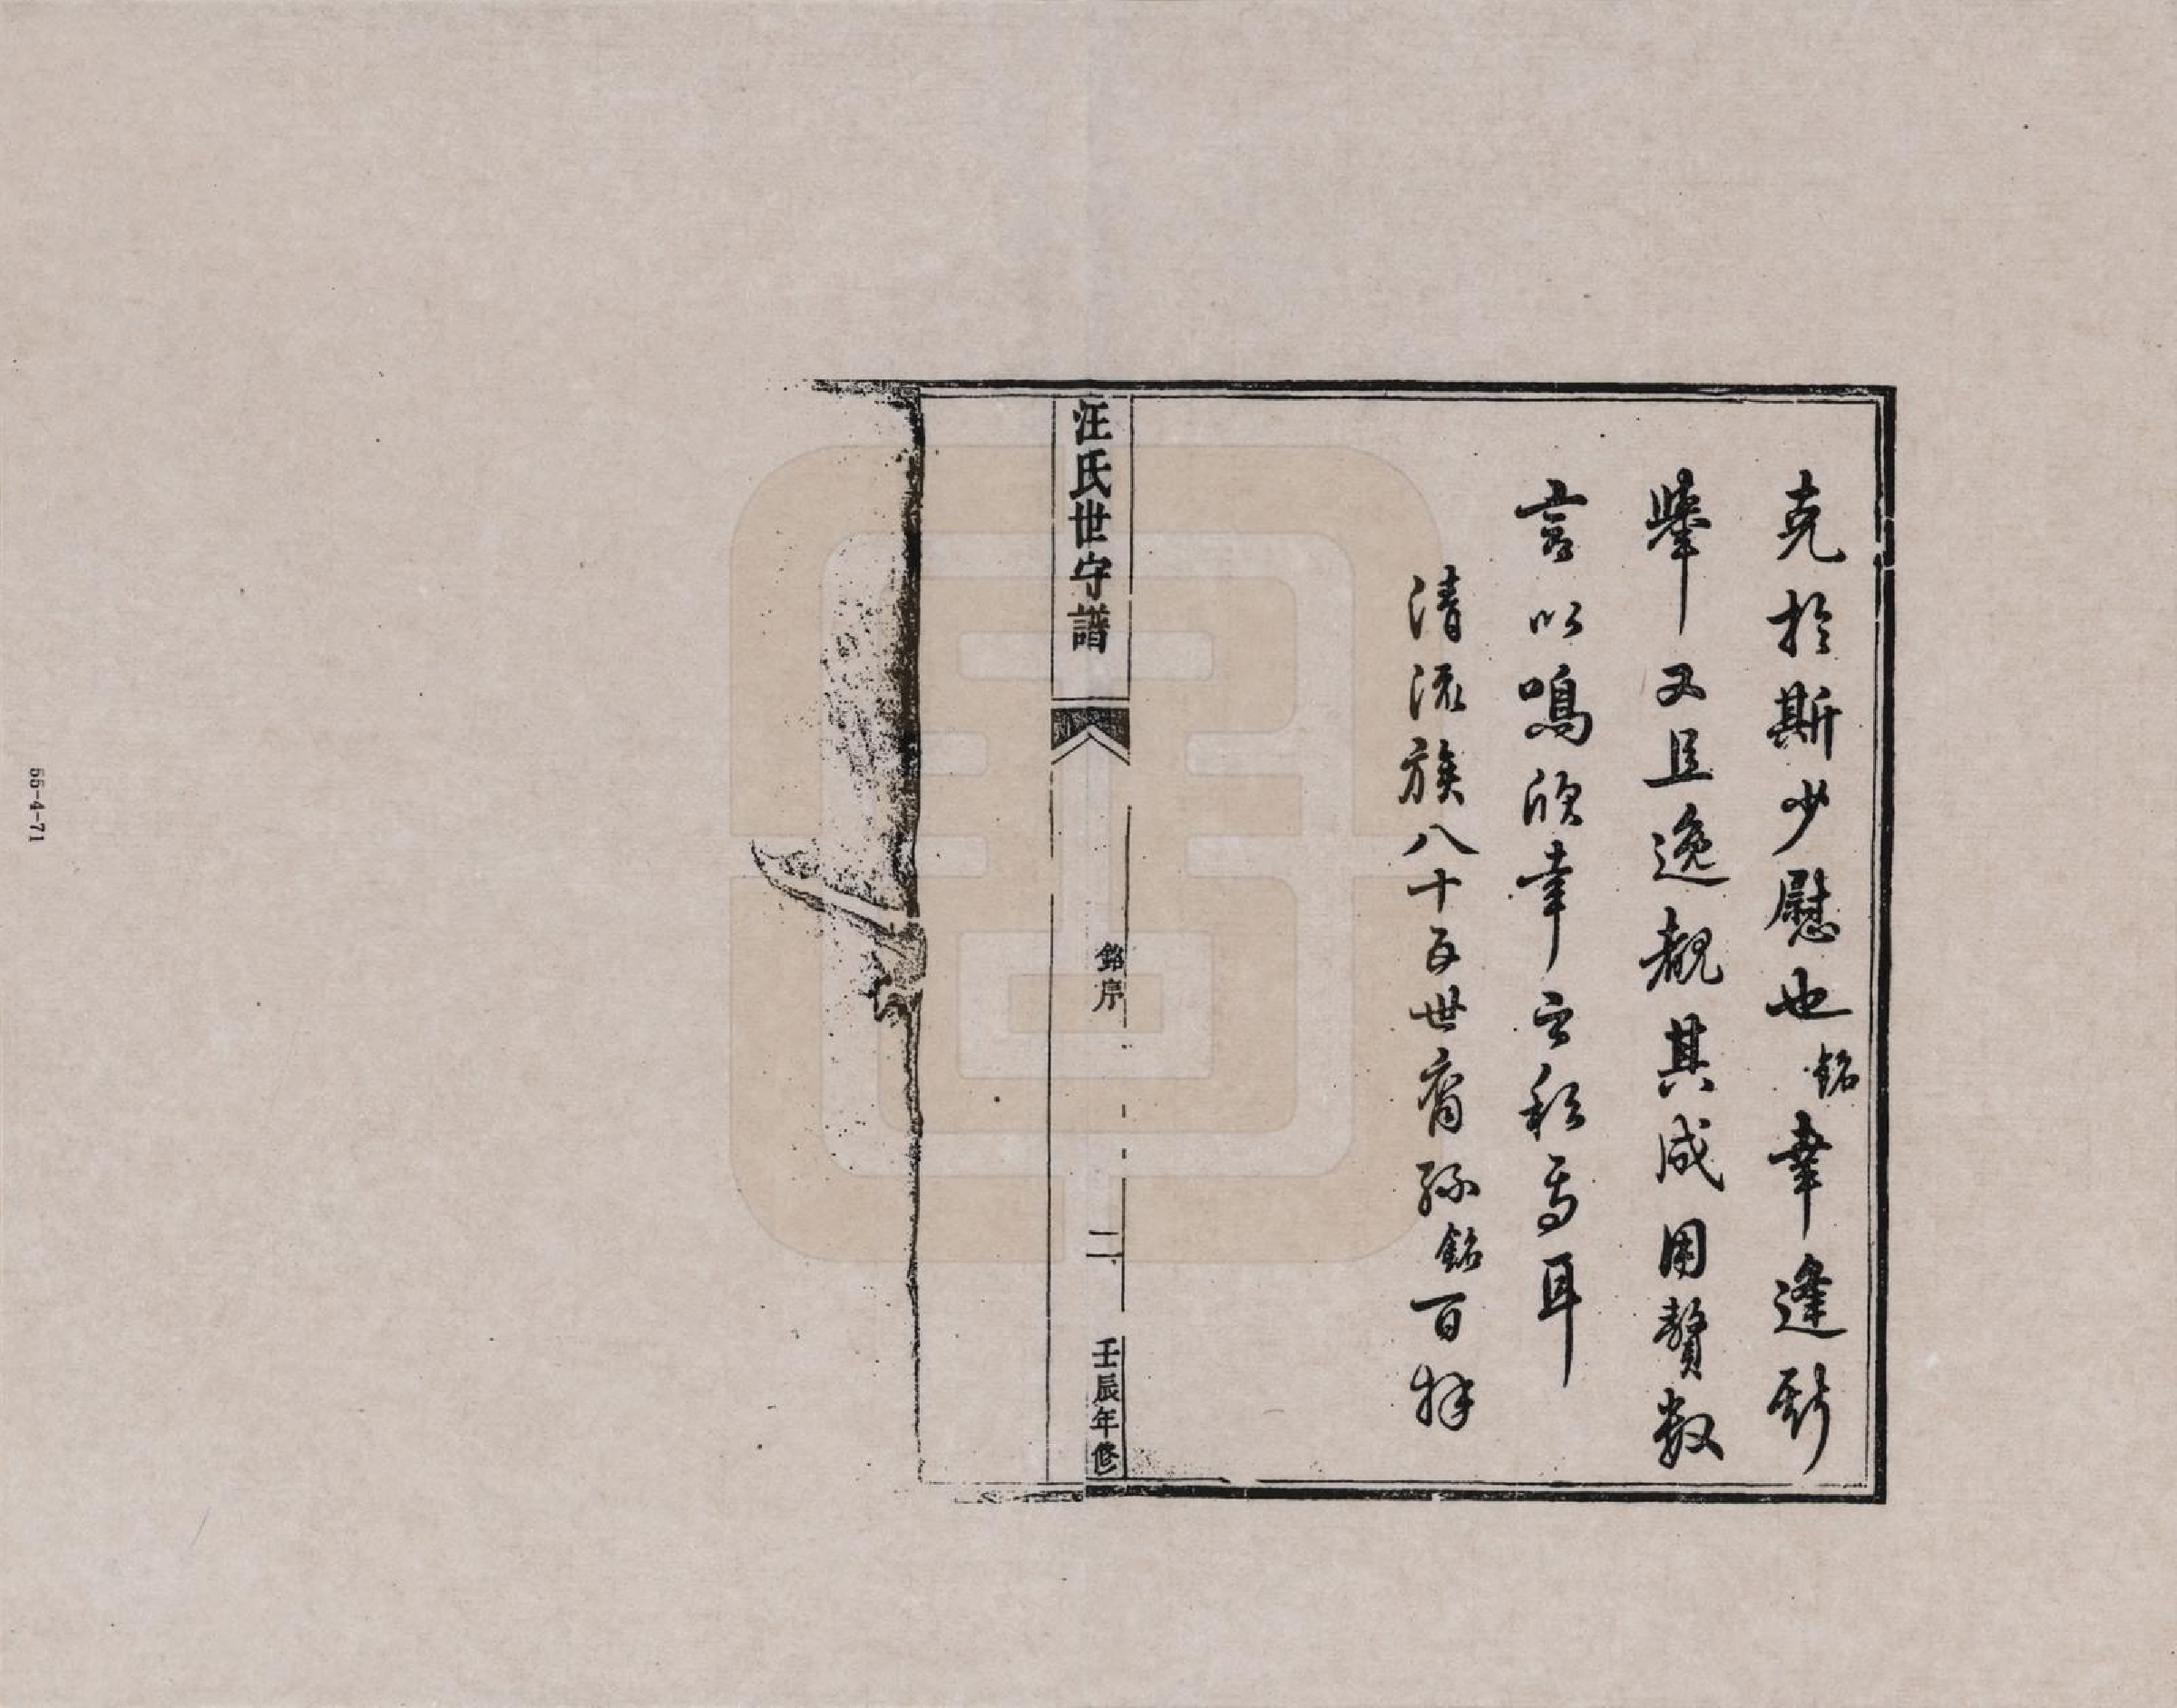 克於斯少慰也銘幸逢斯
舉又且逸覩其成用贅數
言以鳴欣幸之私焉耳
清流族八十五世裔孫銘百拜
汪氏世守譜
銘序
二
壬辰年修
55-4-71